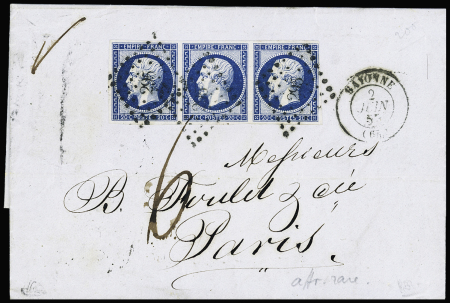 EMPIRE FRANC. EMPIRE FRANC. EMPIRE FRANC.
20 C. POSTES 20 C. 20 C. POSTES 20 C. 20 C. POSTES 20 C.
BAYONNE
2
JUIN
(64)
6
Messieurs
B. Fould & Cie
Paris